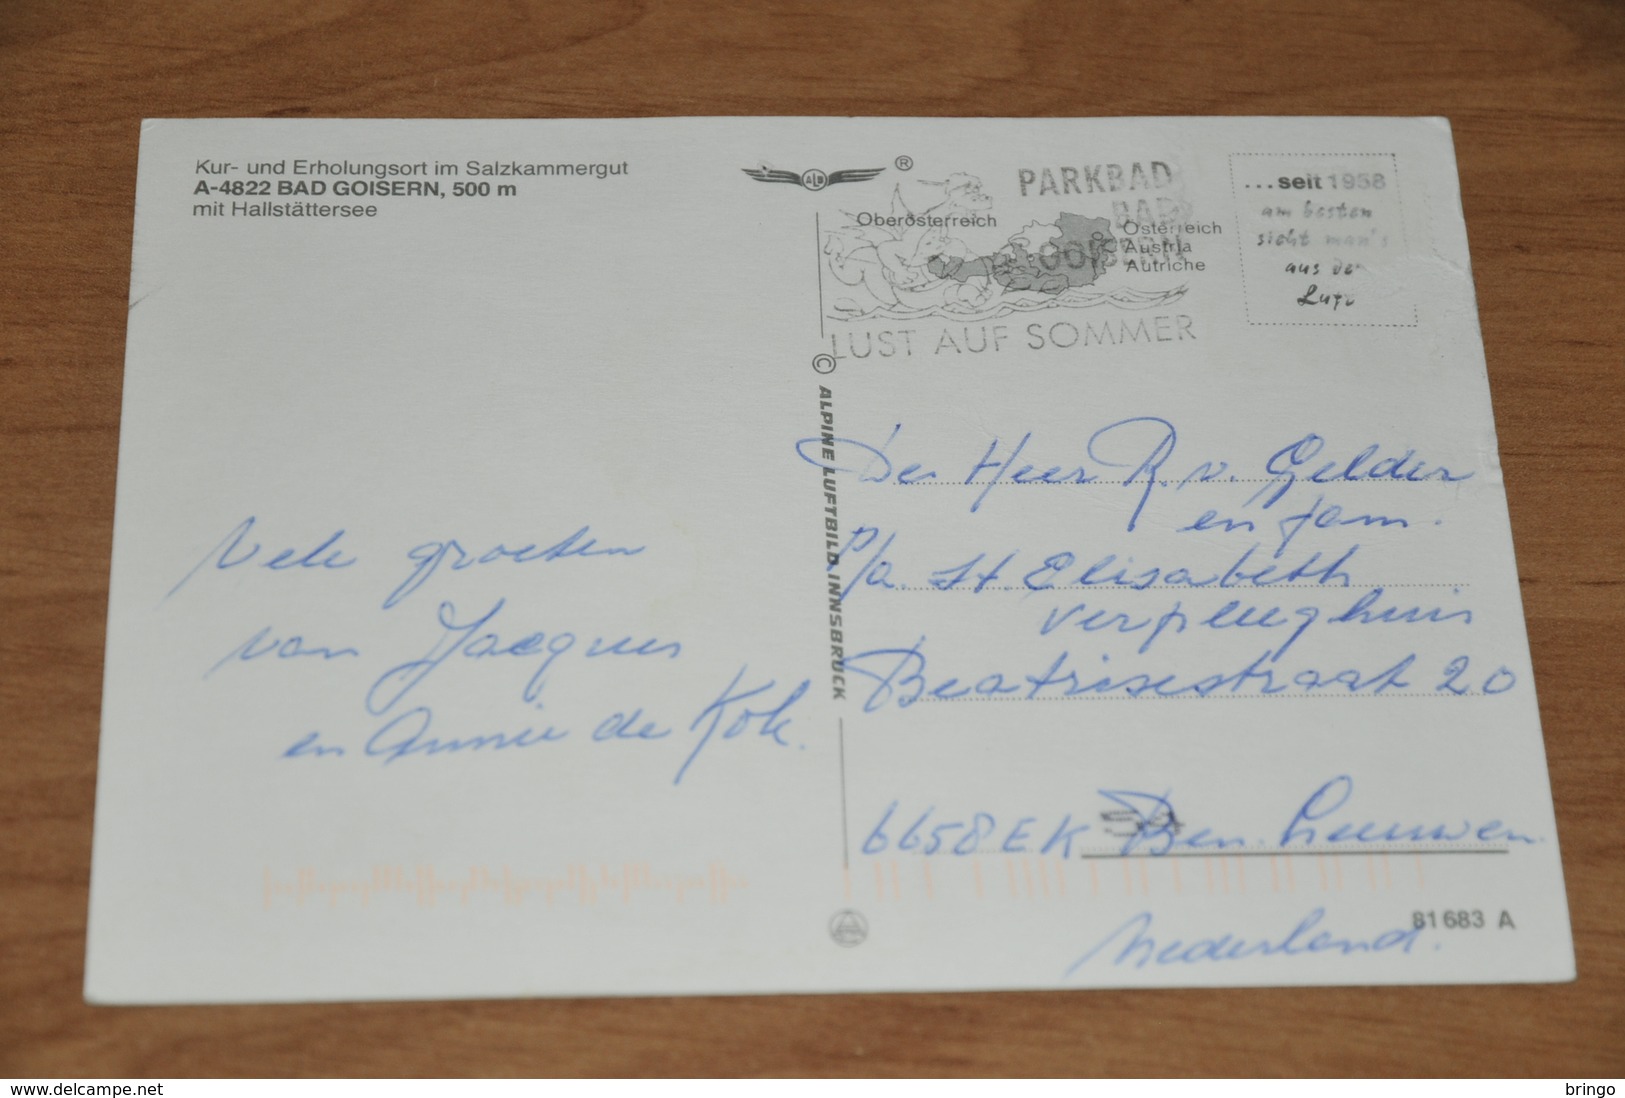 Kur- und Erholungsort im Salzkammergut
A-4822 BAD GOISERN, 500 m
mit Hallstättersee
ALB
®
Oberösterreich
Österreich
Austria
Autriche
PARKBAD
BAD
GOISERN
LUST AUF SOMMER
...seit 1958
am besten
sieht man's
aus der
Luft
© ALPINE LUFTBILD INNSBRUCK
Vele groeten
van Jacques
en Annie de Kok.
De Heer R. v. Gelder
en fam.
p/a. St. Elisabeth
verpleeghuis
Beatrixstraat 20
6658 EK Ben. Leeuwen.
Nederland.
81683 A
delcampe.net
bringo